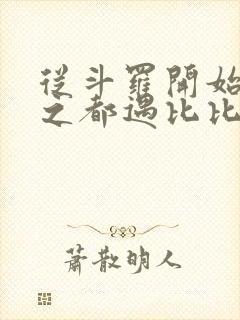 從斗羅開始
之都遇比比
蕭散明人